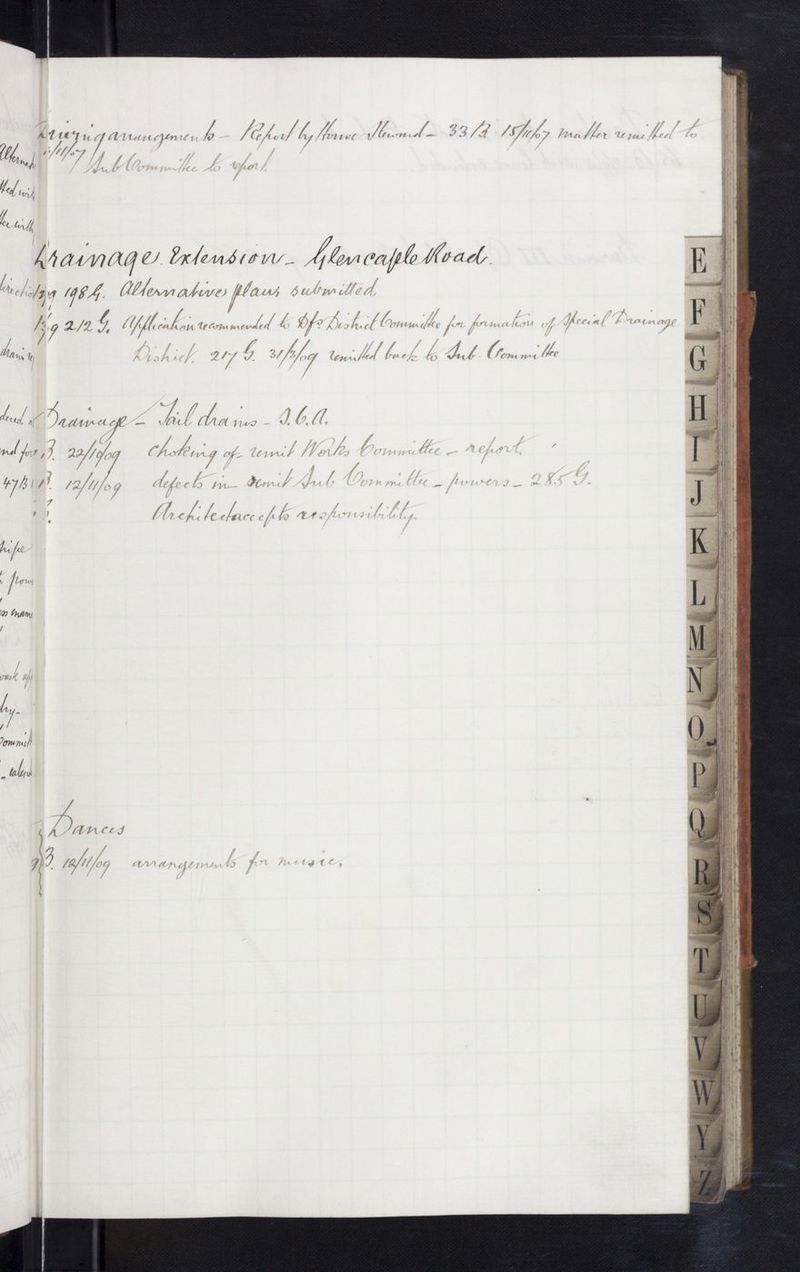 arrangements - Report by House Steward - 33 B 15/11/07 matter remitted to
Sub Committee to report.
Drainage Extension - Glencaple Road.
198 G. Alternative plans submitted
212 G. Application recommended to Dfs District Committee for formation of Special Drainage
District. 217 G. 31/3/09 remitted back to Sub-Committee
Drainage - Tail drains - 
B. 22/1/09 choking of - remit Works Committee - report.
B. 12/11/09 defects in - remit Sub Committee - powers - 285 G.
Architect accepts responsibility.
Dances
B. 12/11/09 arrangements for music.
E
F
G
H
I
J
K
L
M
N
O
P
Q
R
S
T
U
V
W
Y
Z